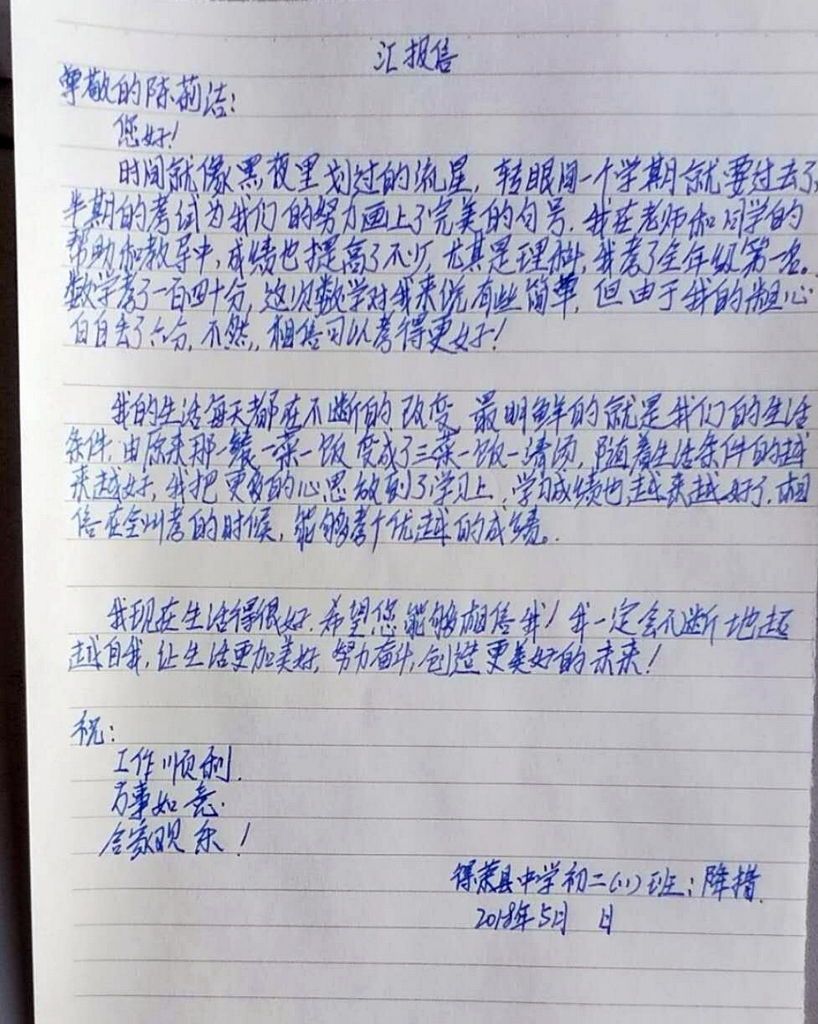 汇报信
尊敬的陈莉洁:
您好!
时间就像黑夜里划过的流星,转眼间一个学期就要过去了,
半期的考试为我们的努力画上了完美的句号.我在老师和同学的
帮助和教导中,成绩也提高了不少,尤其是理科,我考了全年级第一名。
数学考了一百四十分,这次数学对我来说有些简单,但由于我的粗心
白白丢了六分,不然,相信可以考得更好!
我的生活每天都在不断的改变,最明鲜的就是我们的生活
条件,由原来那一餐一菜一饭变成了三菜一饭一清汤,随着生活条件的越
来越好,我把更多的心思放到了学习上,学习成绩也越来越好了.相
信在全州考的时候,能够考个优越的成绩。
我现在生活得很好,希望您能够相信我!我一定会不断地超
越自我,让生活更加美好,努力奋斗,创造更美好的未来!
祝:
工作顺利.
万事如意.
合家欢乐!
得荣县中学初二(1)班:降措.
2018年5月 日